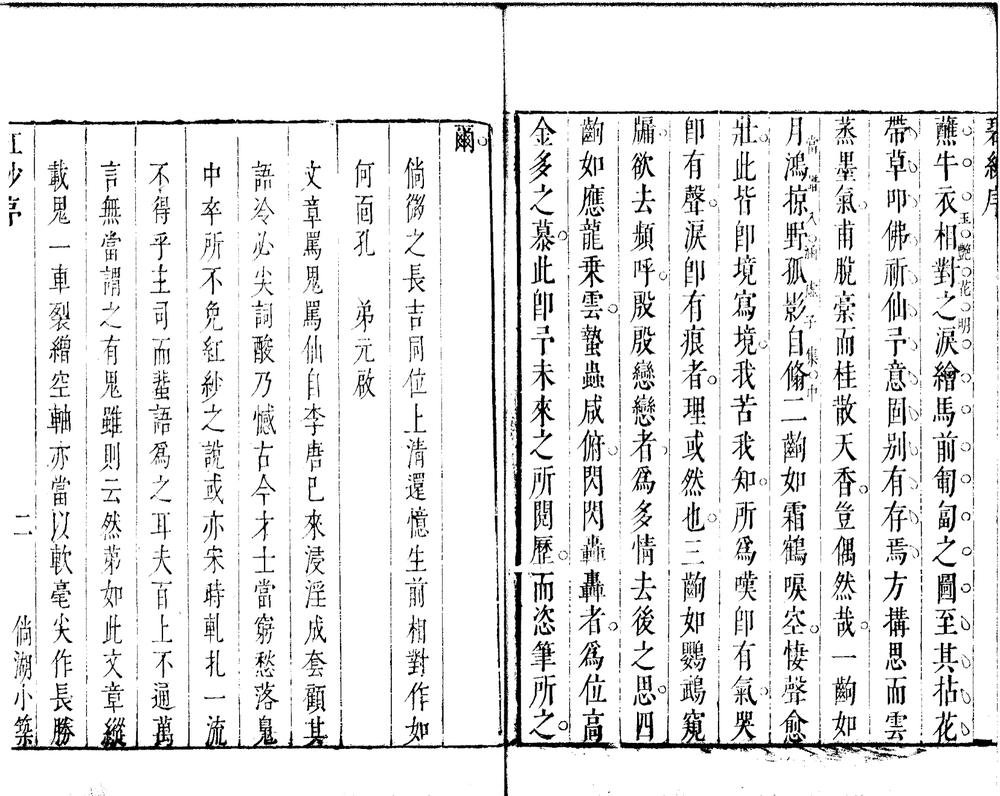 碧紗序
蘸牛衣相對之淚繪馬前匍匐之圖至其拈花
帶草叩佛祈仙予意固别有存焉方搆思而雲
蒸墨氣甫脫稾而桂散天香豈偶然哉一齣如
月鴻掠野孤影自翛二齣如霜鶴唳空悽聲愈
壯此皆卽境寫境我苦我知所爲嘆卽有氣哭
卽有聲淚卽有痕者理或然也三齣如鸚鵡窺
牖欲去頻呼殷殷戀戀者爲多情去後之思四
齣如應龍乘雲蟄蟲咸俯閃閃轟轟者爲位高
金多之慕此卽予未來之所閱歷而恣筆所之
爾
倘微之長吉同位上清還憶生前相對作如
何面孔　弟元啟
文章罵鬼罵仙自李唐已來浸淫成套顧其
語冷必尖詞酸乃憾古今才士當窮愁落鬼
中卒所不免紅紗之說或亦宋時軋扎一流
不得乎主司而蜚語爲之耳夫百上不通萬
言無當謂之有鬼雖則云然第如此文章縱
載鬼一車裂繒空軸亦當以軟毫尖作長勝
紅紗序　二　倘湖小築